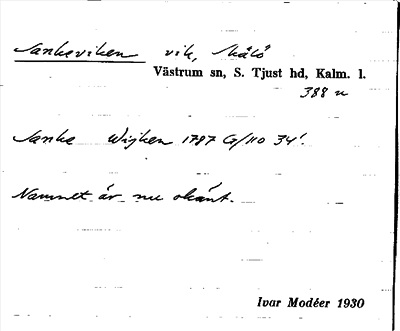 Sankeviken vik, Målö
Västrum sn, S. Tjust hd, Kalm. l.
388 u
Sanke Wijken 1787 G/110 34¹.
Namnet är nu okänt.
Ivar Modéer 1930